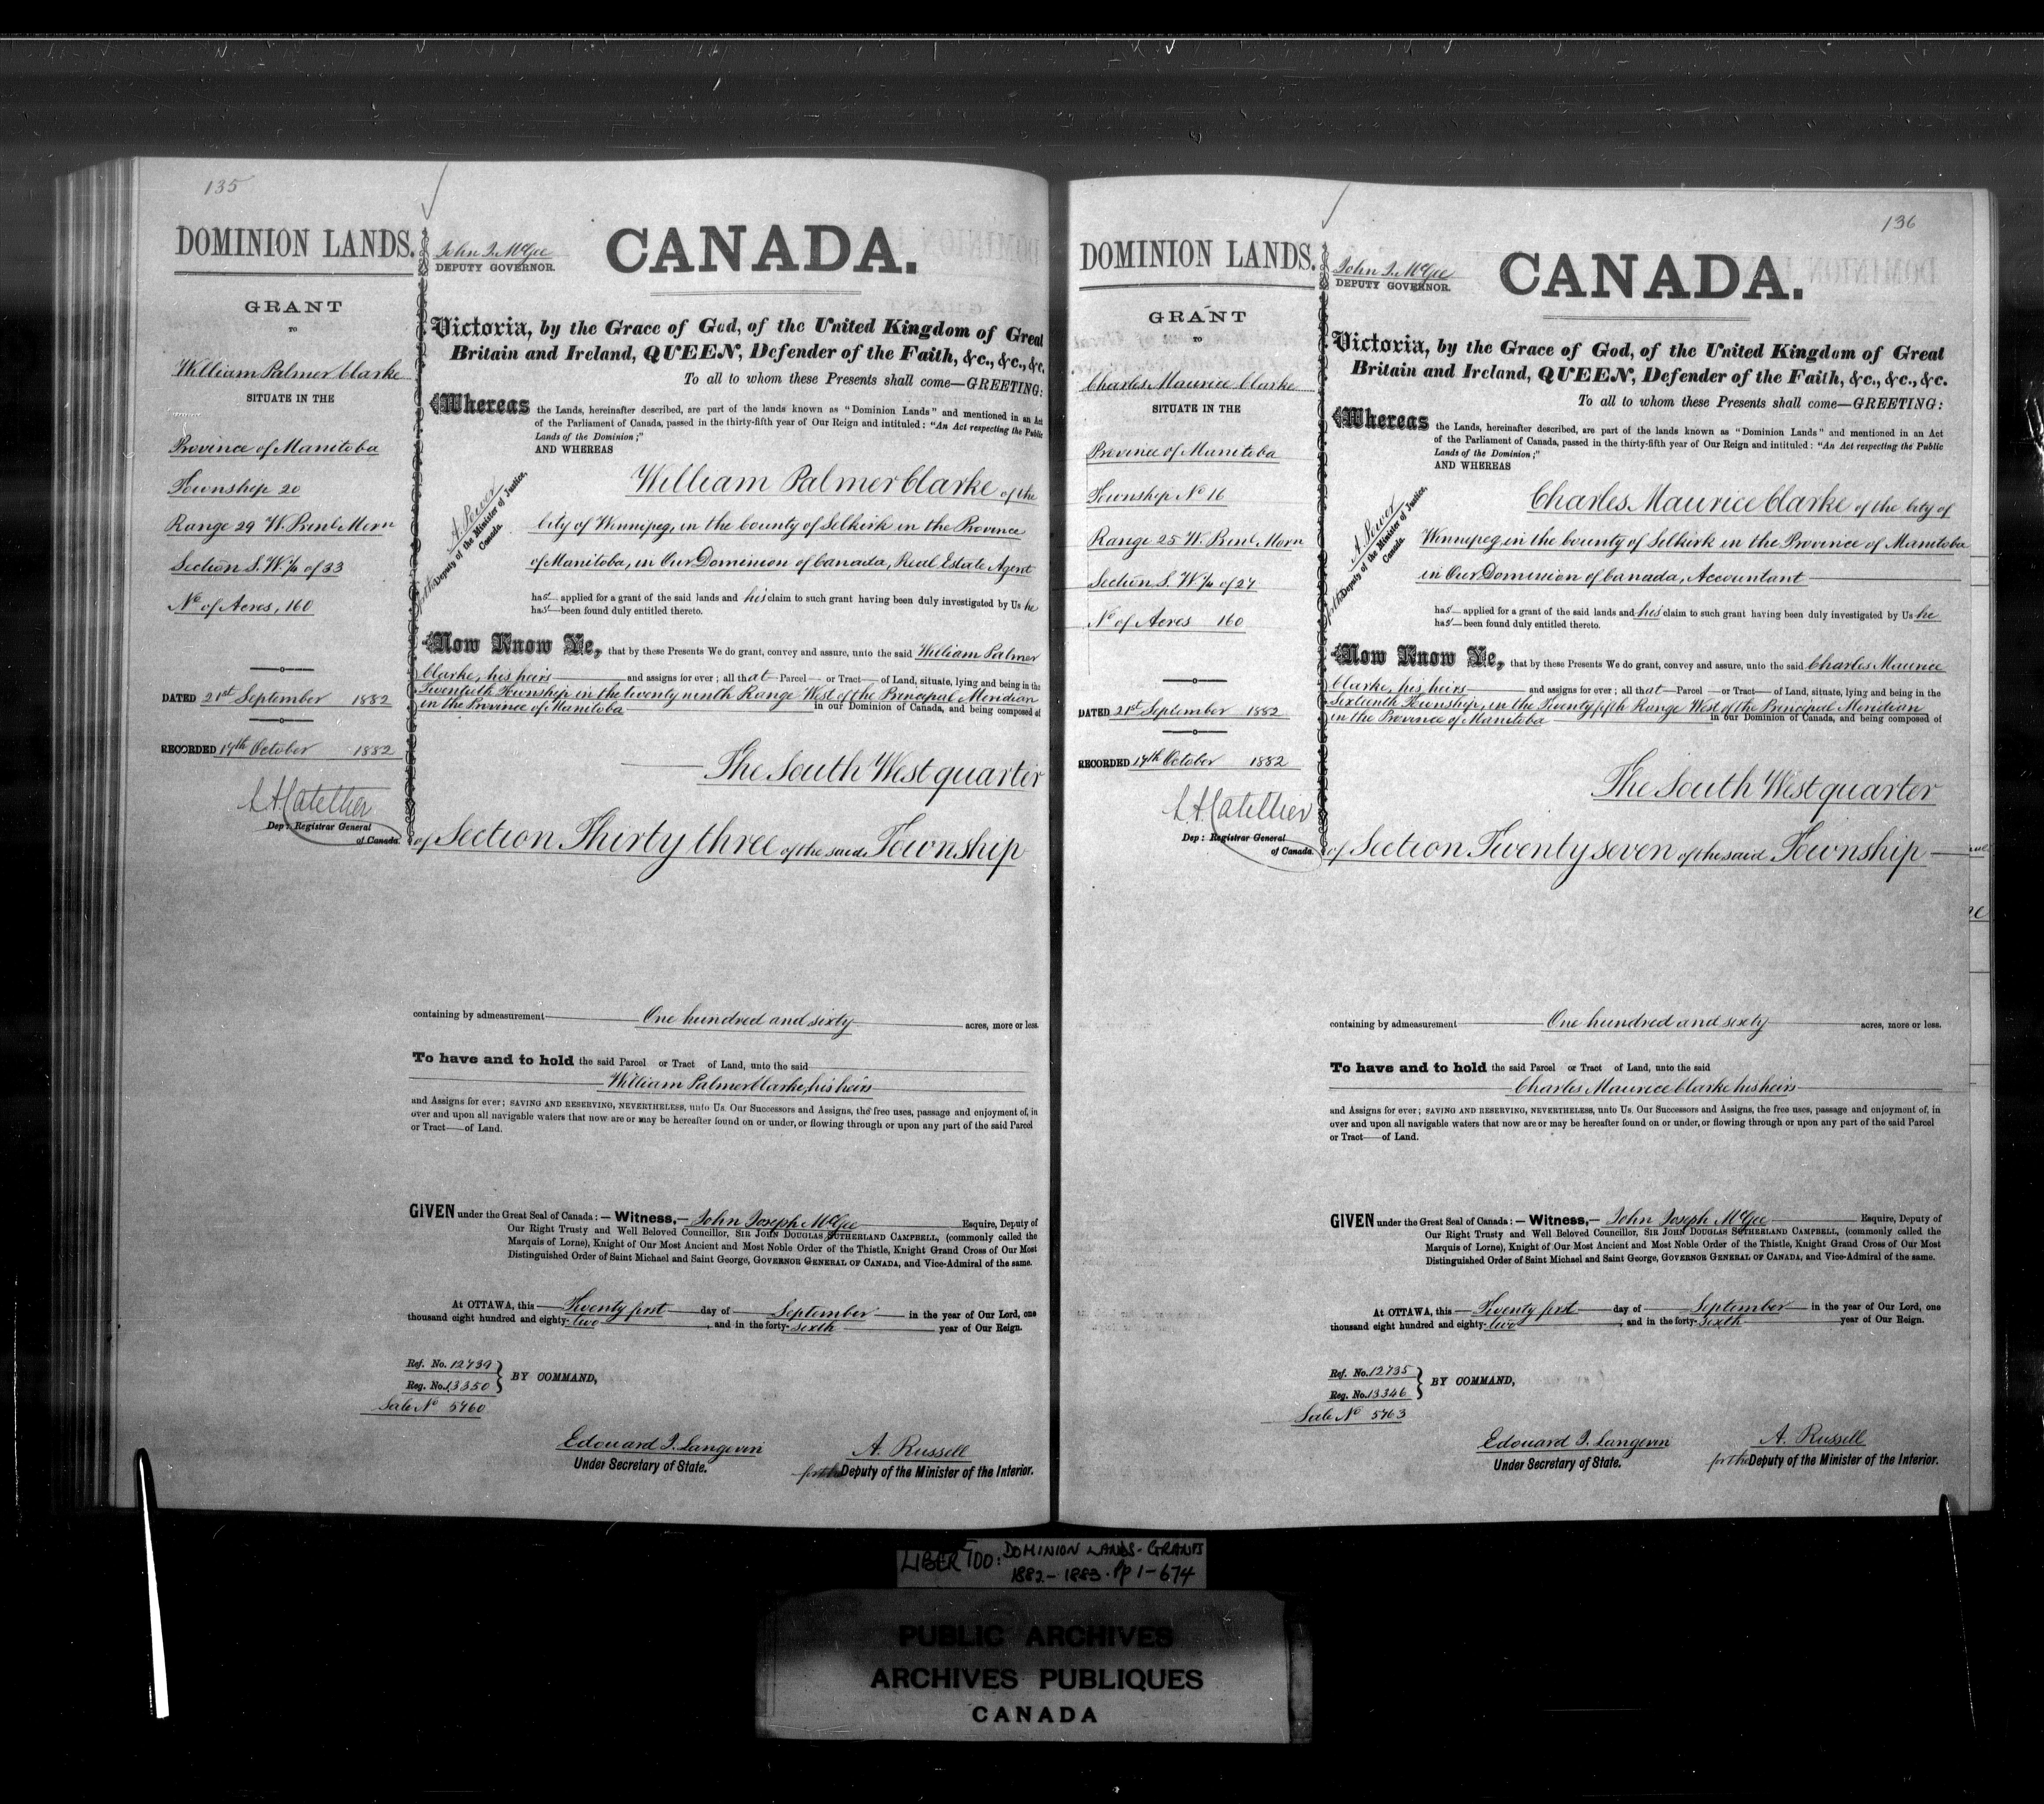 135
DOMINION LANDS.
GRANT
TO
William Palmer Clarke
SITUATE IN THE
Province of Manitoba
Township 20
Range 29 W. Prinl. Mern
Section S. W. 1/4 of 33
No of Acres, 160
DATED 21st September 1882
RECORDED 17th October 1882
Dep: Registrar General
of Canada.
John J. McGee
DEPUTY GOVERNOR.
CANADA.
Victoria, by the Grace of God, of the United Kingdom of Great
Britain and Ireland, QUEEN, Defender of the Faith, &c., &c., &c.
To all to whom these Presents shall come—GREETING:
Whereas the Lands, hereinafter described, are part of the lands known as "Dominion Lands" and mentioned in an Act
of the Parliament of Canada, passed in the thirty-fifth year of Our Reign and intituled: "An Act respecting the Public
Lands of the Dominion;"
AND WHEREAS
A. Power
for the Deputy of the Minister of Justice,
Canada.
William Palmer Clarke of the
City of Winnipeg, in the County of Selkirk in the Province
of Manitoba, in Our Dominion of Canada, Real Estate Agent
has applied for a grant of the said lands and his claim to such grant having been duly investigated by Us he
has been found duly entitled thereto.
Now Know Ye, that by these Presents We do grant, convey and assure, unto the said William Palmer
Clarke, his heirs and assigns for ever; all that Parcel or Tract of Land, situate, lying and being in the
Twentieth Township in the twenty ninth Range West of the Principal Meridian
in the Province of Manitoba in our Dominion of Canada, and being composed of
The South West quarter
of Section Thirty three of the said Township
containing by admeasurement One hundred and sixty acres, more or less.
To have and to hold the said Parcel or Tract of Land, unto the said
William Palmer Clarke, his heirs
and Assigns for ever; SAVING AND RESERVING, NEVERTHELESS, unto Us. Our Successors and Assigns, the free uses, passage and enjoyment of, in
over and upon all navigable waters that now are or may be hereafter found on or under, or flowing through or upon any part of the said Parcel
or Tract—of Land.
GIVEN under the Great Seal of Canada:— Witness,— John Joseph McGee Esquire, Deputy of
Our Right Trusty and Well Beloved Councillor, SIR JOHN DOUGLAS SUTHERLAND CAMPBELL, (commonly called the
Marquis of Lorne), Knight of Our Most Ancient and Most Noble Order of the Thistle, Knight Grand Cross of Our Most
Distinguished Order of Saint Michael and Saint George, GOVERNOR GENERAL OF CANADA, and Vice-Admiral of the same.
At OTTAWA, this Twenty first day of September in the year of Our Lord, one
thousand eight hundred and eighty-two, and in the forty-sixth year of Our Reign.
Ref. No. 12739
Reg. No. 13350
BY COMMAND,
Sale No 5760
Edouard J. Langevin
Under Secretary of State.
A. Russell
for the Deputy of the Minister of the Interior.
136
DOMINION LANDS.
GRANT
TO
Charles Maurice Clarke
SITUATE IN THE
Province of Manitoba
Township No 16
Range 25 W. Prinl. Mern
Section S. W. 1/4 of 27
No of Acres 160
DATED 21st September 1882
RECORDED 17th October 1882
Dep: Registrar General
of Canada.
John J. McGee
DEPUTY GOVERNOR.
CANADA.
Victoria, by the Grace of God, of the United Kingdom of Great
Britain and Ireland, QUEEN, Defender of the Faith, &c., &c., &c.
To all to whom these Presents shall come—GREETING:
Whereas the Lands, hereinafter described, are part of the lands known as "Dominion Lands" and mentioned in an Act
of the Parliament of Canada, passed in the thirty-fifth year of Our Reign and intituled: "An Act respecting the Public
Lands of the Dominion;"
AND WHEREAS
A. Power
for the Deputy of the Minister of Justice,
Canada.
Charles Maurice Clarke of the City of
Winnipeg, in the County of Selkirk in the Province of Manitoba
in Our Dominion of Canada, Accountant
has applied for a grant of the said lands and his claim to such grant having been duly investigated by Us he
has been found duly entitled thereto.
Now Know Ye, that by these Presents We do grant, convey and assure, unto the said Charles Maurice
Clarke, his heirs and assigns for ever; all that Parcel or Tract of Land, situate, lying and being in the
Sixteenth Township, in the Twenty fifth Range West of the Principal Meridian
in the Province of Manitoba in our Dominion of Canada, and being composed of
The South West quarter
of Section Twenty seven of the said Township
containing by admeasurement One hundred and sixty acres, more or less.
To have and to hold the said Parcel or Tract of Land, unto the said
Charles Maurice Clarke his heirs
and Assigns for ever; SAVING AND RESERVING, NEVERTHELESS, unto Us. Our Successors and Assigns, the free uses, passage and enjoyment of, in
over and upon all navigable waters that now are or may be hereafter found on or under, or flowing through or upon any part of the said Parcel
or Tract—of Land.
GIVEN under the Great Seal of Canada:— Witness,— John Joseph McGee Esquire, Deputy of
Our Right Trusty and Well Beloved Councillor, SIR JOHN DOUGLAS SUTHERLAND CAMPBELL, (commonly called the
Marquis of Lorne), Knight of Our Most Ancient and Most Noble Order of the Thistle, Knight Grand Cross of Our Most
Distinguished Order of Saint Michael and Saint George, GOVERNOR GENERAL OF CANADA, and Vice-Admiral of the same.
At OTTAWA, this Twenty first day of September in the year of Our Lord, one
thousand eight hundred and eighty-two, and in the forty-sixth year of Our Reign.
Ref. No. 12735
Reg. No. 13346
BY COMMAND,
Sale No 5763
Edouard J. Langevin
Under Secretary of State.
A. Russell
for the Deputy of the Minister of the Interior.
LIBER 100: DOMINION LANDS-GRANTS
1882-1883. Pp 1-674
PUBLIC ARCHIVES
ARCHIVES PUBLIQUES
CANADA